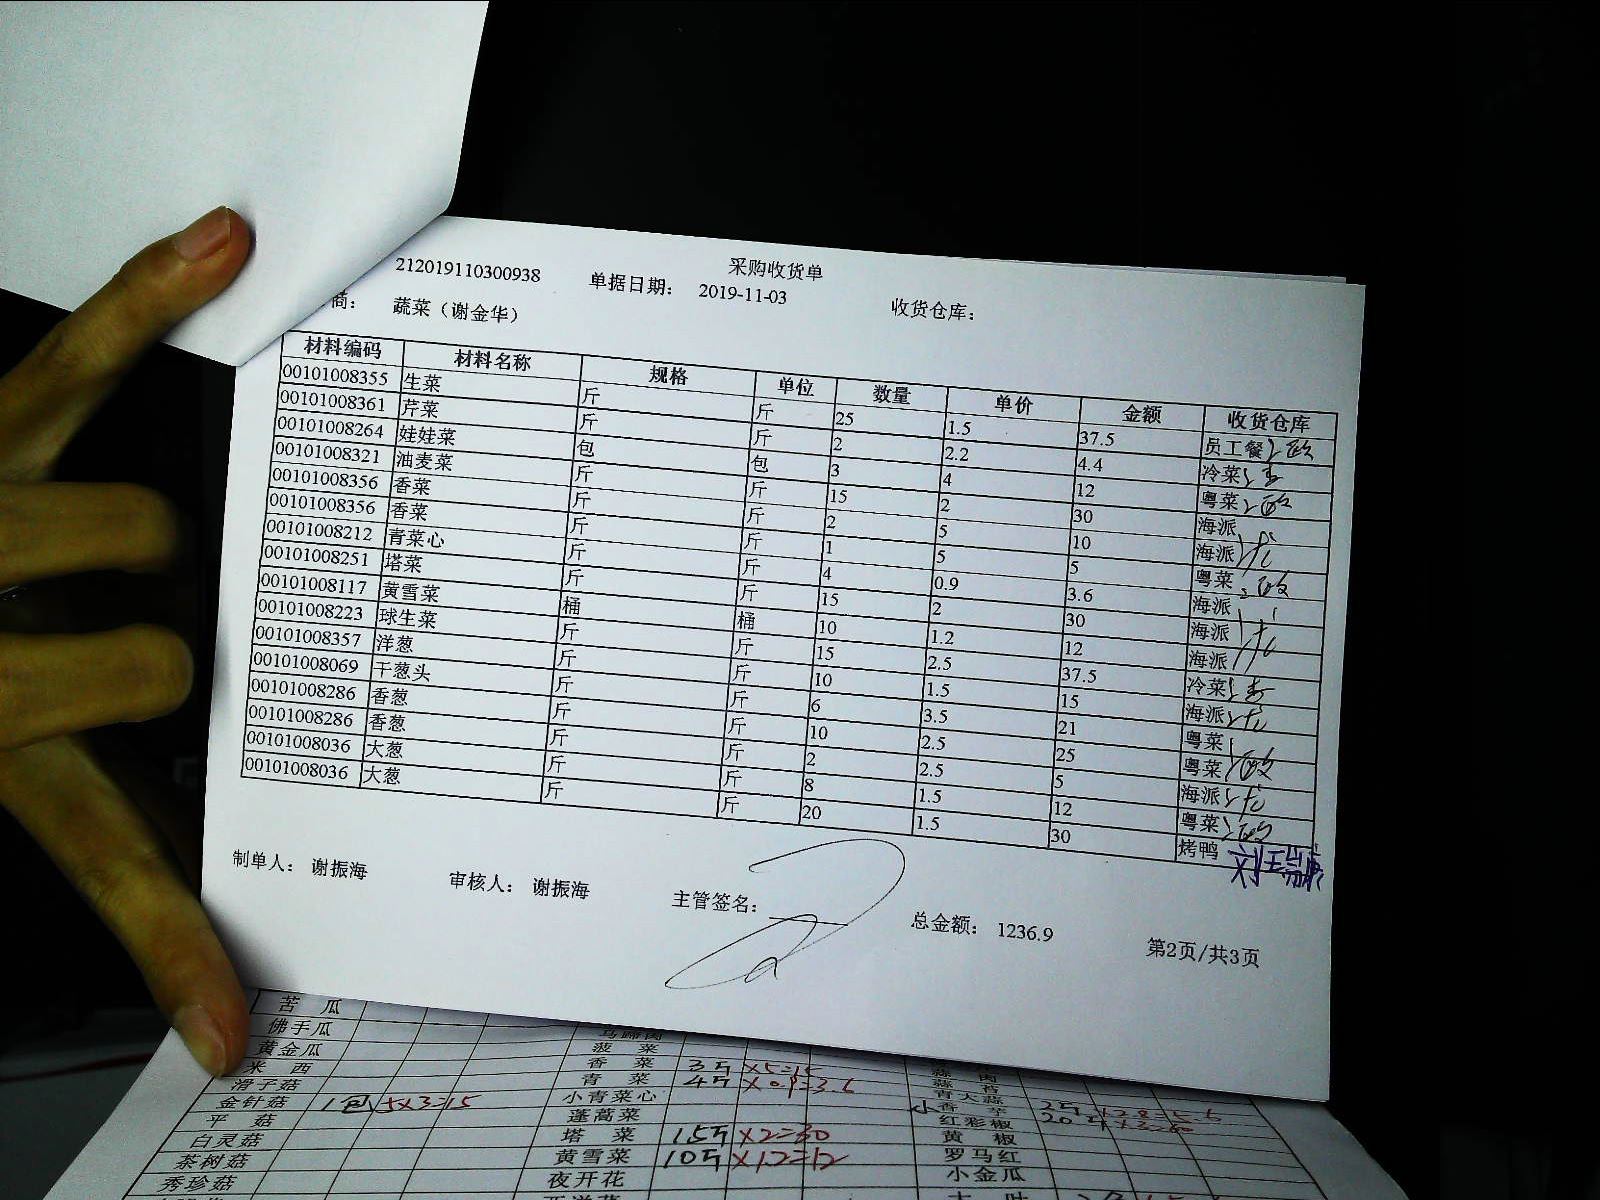 采购收货单
212019110300938 单据日期： 2019-11-03 收货仓库：
商： 蔬菜（谢金华）
材料编码 材料名称 规格 单位 数量 单价 金额 收货仓库
00101008355 生菜 斤 斤 25 1.5 37.5 员工餐
00101008361 芹菜 斤 斤 2 2.2 4.4 冷菜
00101008264 娃娃菜 包 包 3 4 12 粤菜
00101008321 油麦菜 斤 斤 15 2 30 海派
00101008356 香菜 斤 斤 2 5 10 海派
00101008356 香菜 斤 斤 1 5 5 粤菜
00101008212 青菜心 斤 斤 4 0.9 3.6 海派
00101008251 塔菜 斤 斤 15 2 30 海派
00101008117 黄雪菜 桶 桶 10 1.2 12 海派
00101008223 球生菜 斤 斤 15 2.5 37.5 冷菜
00101008357 洋葱 斤 斤 10 1.5 15 海派
00101008069 干葱头 斤 斤 6 3.5 21 粤菜
00101008286 香葱 斤 斤 10 2.5 25 粤菜
00101008286 香葱 斤 斤 2 2.5 5 海派
00101008036 大葱 斤 斤 8 1.5 12 粤菜
00101008036 大葱 斤 斤 20 1.5 30 烤鸭
制单人： 谢振海 审核人： 谢振海 主管签名： 总金额： 1236.9 第2页/共3页
苦瓜
佛手瓜
黄金瓜 菠菜
米西 香菜 3斤×5=15
滑子菇 青菜 4斤×0.9=3.6 青大蒜
金针菇 1包 5×3=15 小青菜心 小香芋 2斤×2.8=5.6
平菇 蓬蒿菜 红彩椒 20斤×3=60
白灵菇 塔菜 15斤×2=30 黄椒
茶树菇 黄雪菜 10斤×1.2=12 罗马红
秀珍菇 夜开花 小金瓜